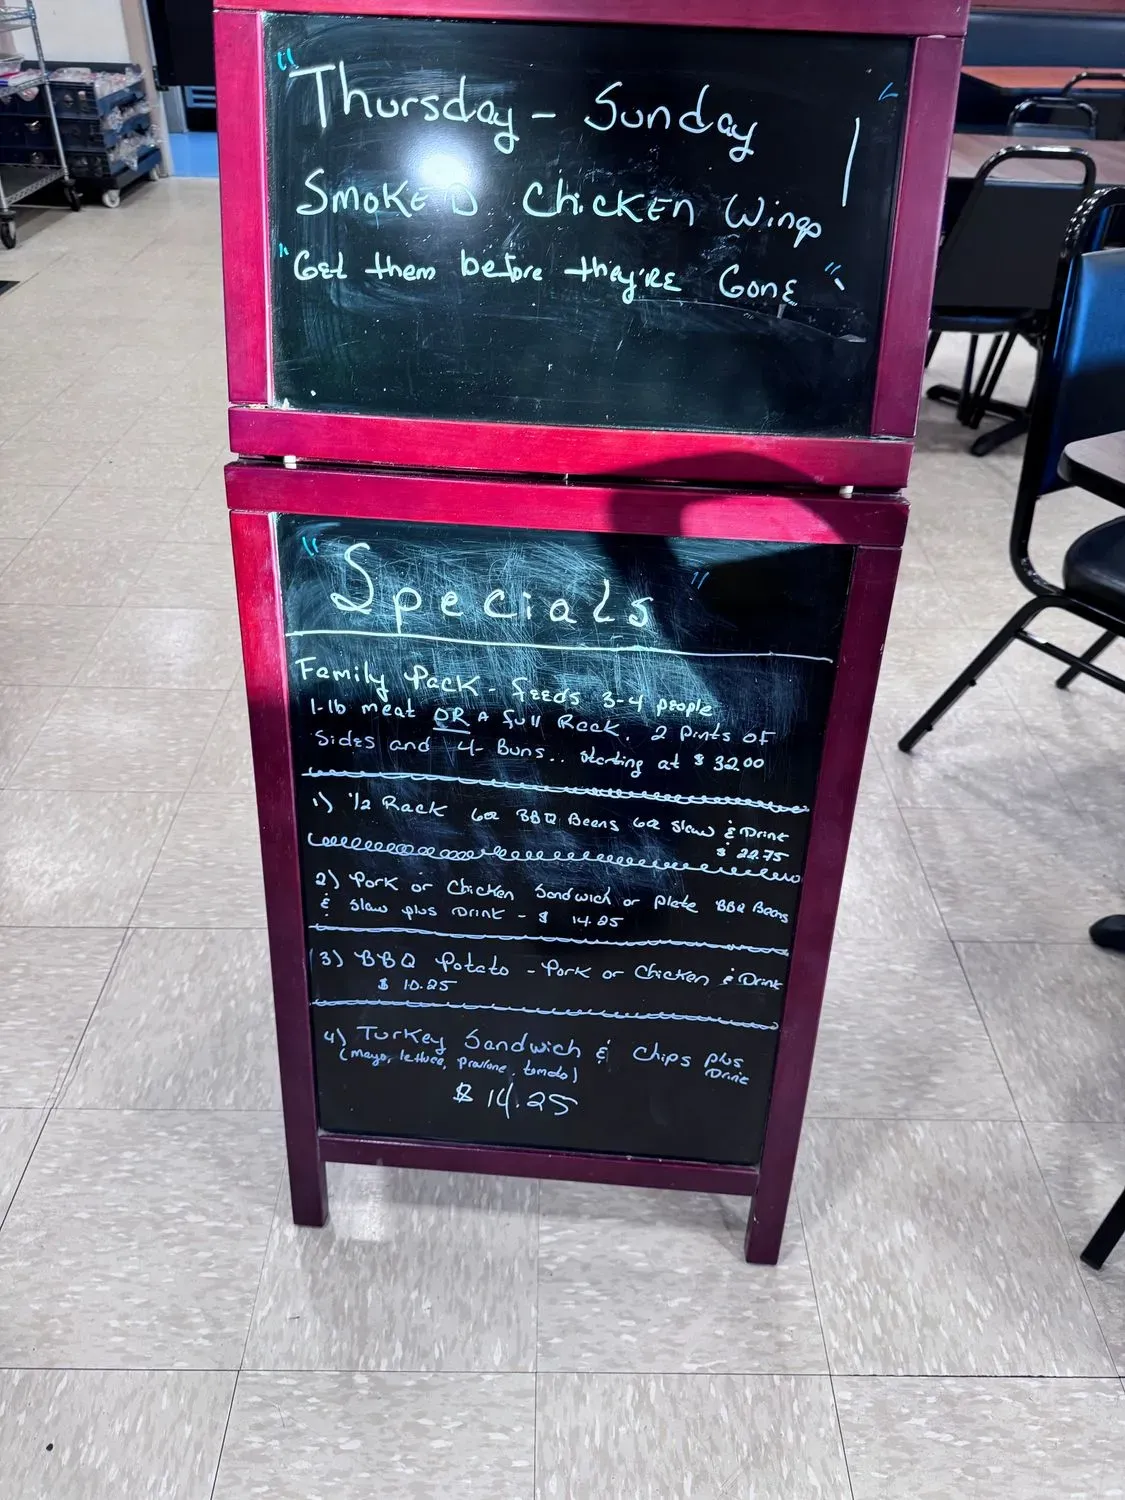 "Thursday - Sunday"
Smoked Chicken Wings
"Get them before they're Gone"
"Specials"
Family Pack - feeds 3-4 people
1-lb meat OR A full Rack, 2 pints OF
Sides and 4- Buns.. Starting at $ 32.00
1) 1/2 Rack 6oz BBQ Beans 6oz Slaw & Drink
$ 22.75
2) Pork or Chicken Sandwich or plate BBQ Beans
& Slaw plus Drink - $ 14.25
3) BBQ Potato - Pork or Chicken & Drink
$ 10.25
4) Turkey Sandwich & Chips plus
(mayo, lettuce, provlone, tomato) Drink
$ 14.25